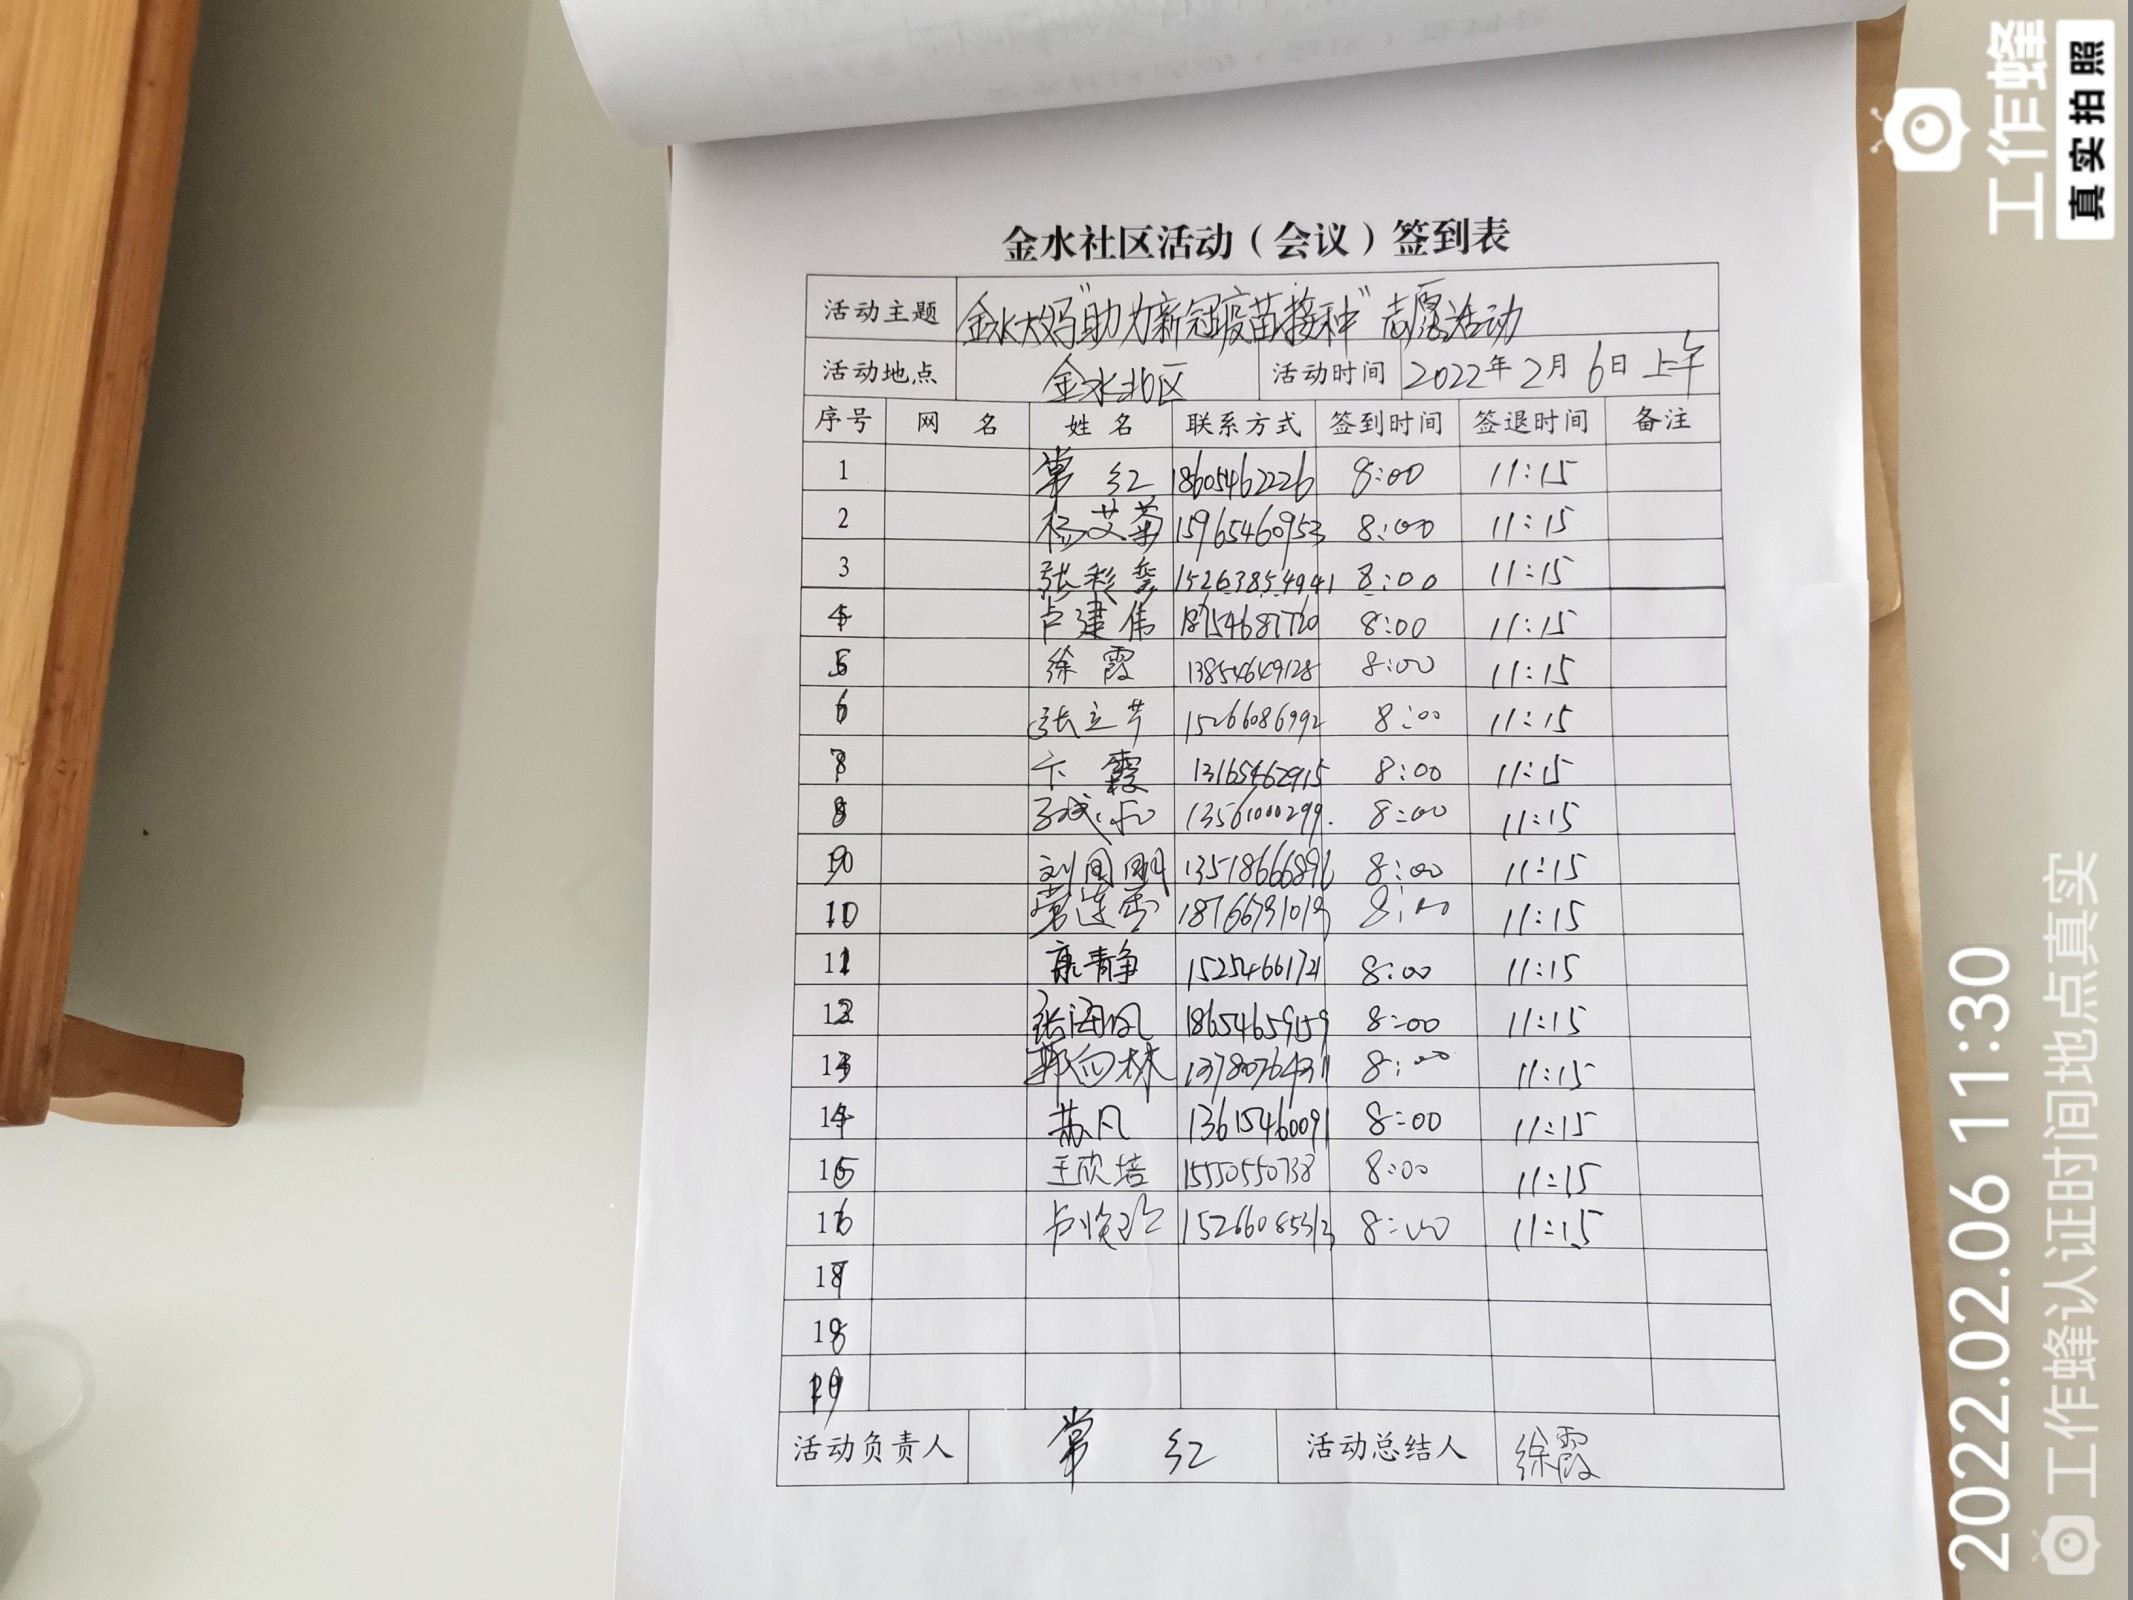 金水社区活动（会议）签到表
活动主题 金水大妈"助力新冠疫苗接种"志愿活动
活动地点 金水北区 活动时间 2022年2月6日上午
序号 网 名 姓 名 联系方式 签到时间 签退时间 备注
1 常 红 18605462226 8:00 11:15
2 杨艾菊 15965460953 8:00 11:15
3 张彩 15263854941 8:00 11:15
4 卢建伟 18754687720 8:00 11:15
5 徐霞 13854649128 8:00 11:15
6 张立芹 15266086992 8:00 11:15
7 卞霞 13165462915 8:00 11:15
8 13561000299. 8:00 11:15
9 刘国刚 13518666896 8:00 11:15
10 常连 8:00 11:15
11 康青静 15254661721 8:00 11:15
12 张海风 18654659159 8:00 11:15
13 郭向林 13780764311 8:00 11:15
14 苏凡 13615460091 8:00 11:15
15 王欣培 15550550738 8:00 11:15
16 卢 8:00 11:15
17
18
19
活动负责人 常 红 活动总结人 徐霞
工作蜂
真实拍照
2022.02.06 11:30
工作蜂认证时间地点真实